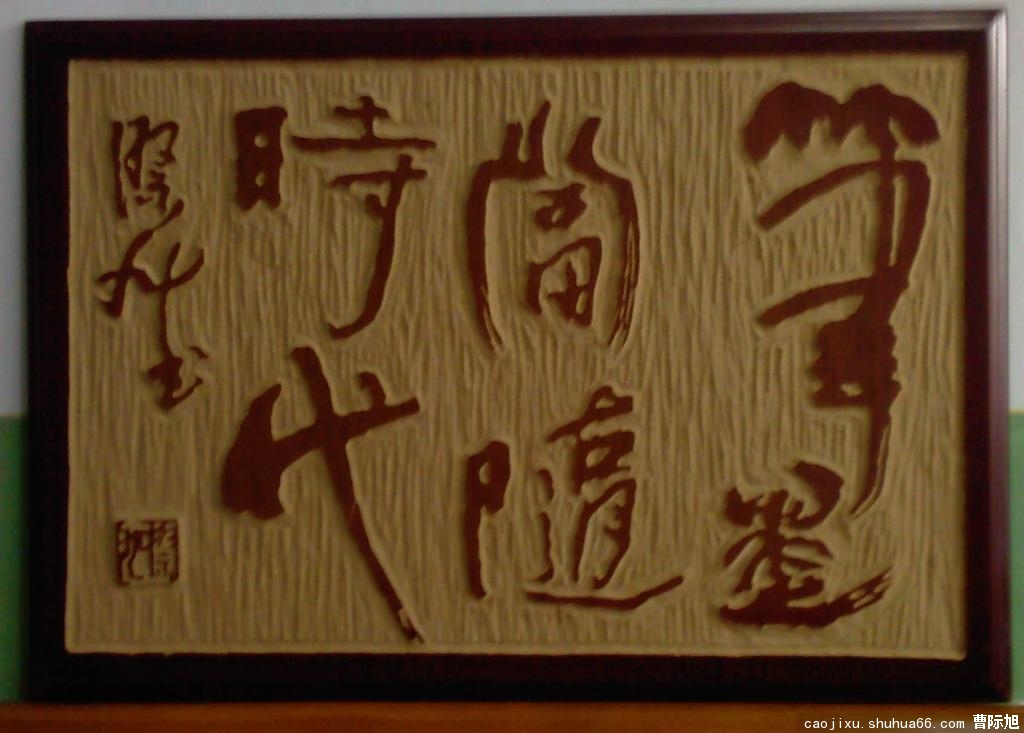 筆墨
當隨
時代
caojixu.shuhua66.com 曹际旭